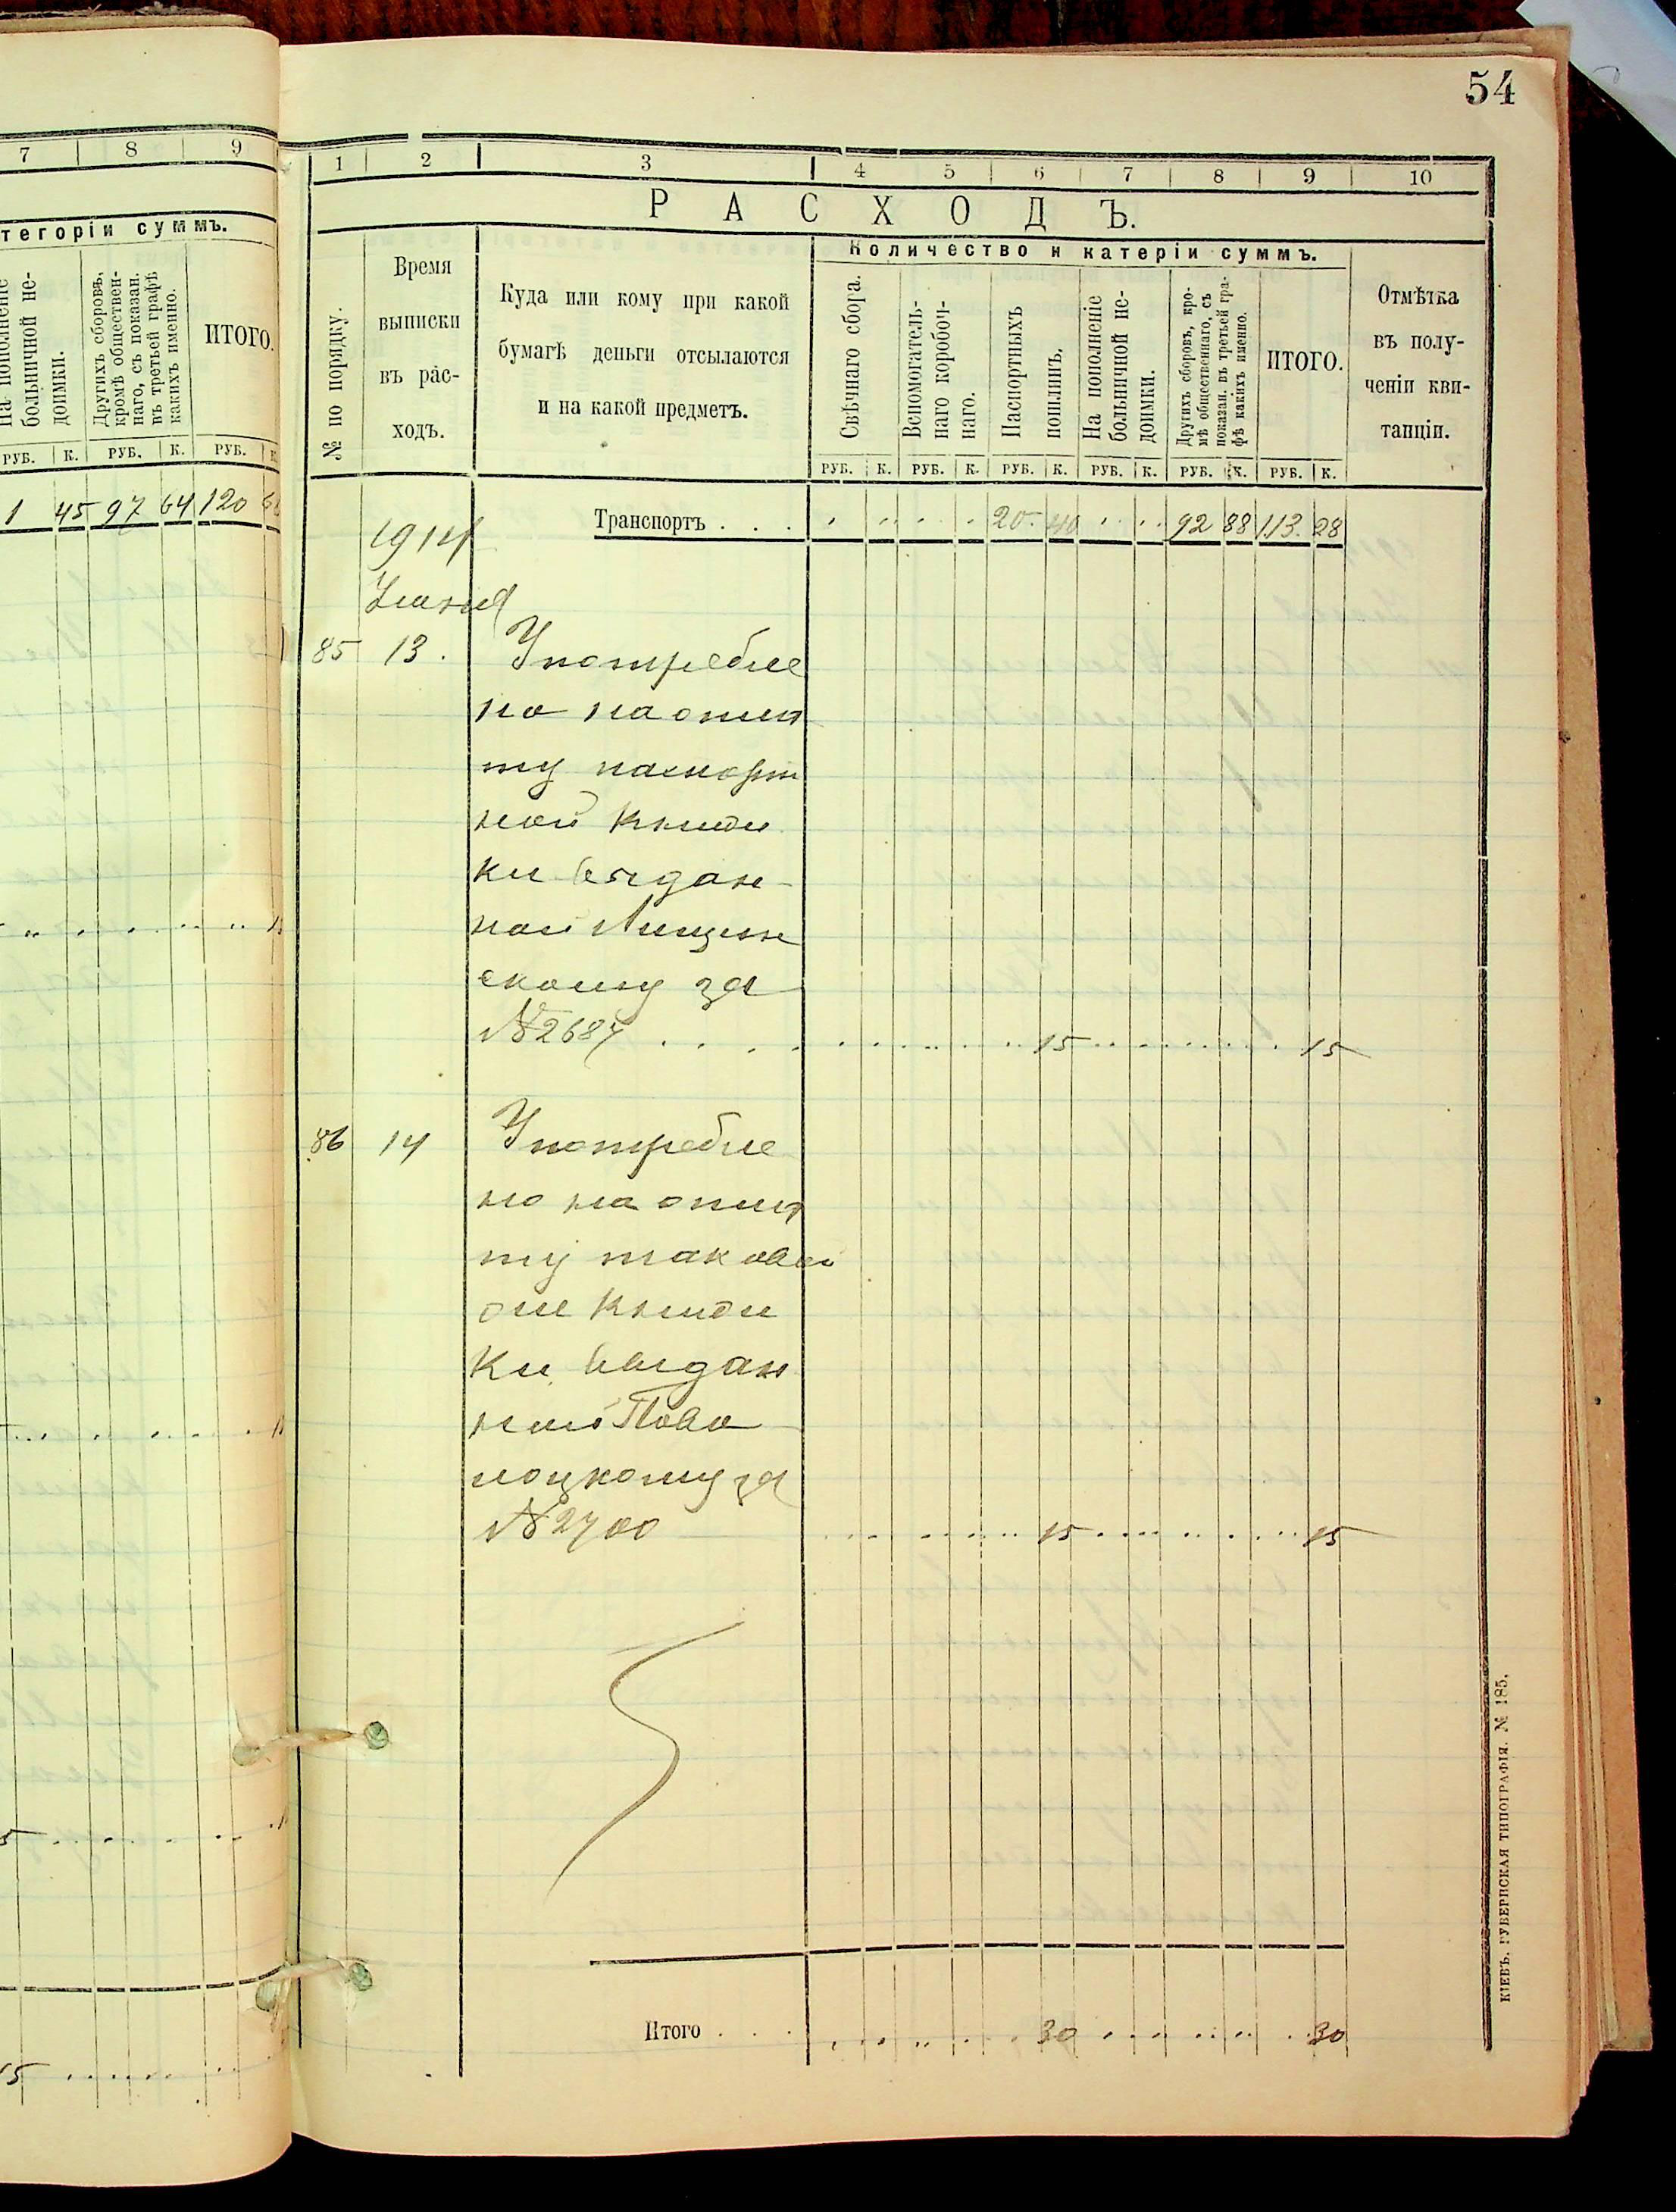 54
7 8 9
тегоріи суммъ.
На пополненіе
больничной не-
доимки.
Другихъ сборовъ,
кромѣ обществен-
наго, съ показан.
въ третьей графѣ
какихъ именно.
ИТОГО.
РУБ. К. РУБ. К. РУБ.
1 45 97 64 120
1 2 3 4 5 6 7 8 9 10
РАСХОДЪ.
№ по порядку.
Время
выписки
въ рас-
ходъ.
Куда или кому при какой
бумагѣ деньги отсылаются
и на какой предметъ.
Количество и катеріи суммъ.
Свѣчнаго сбора.
Вспомогатель-
наго коробоч-
наго.
Паспортныхъ
пошлинъ.
На пополненіе
больничной не-
доимки.
Другихъ сборовъ, кро-
мѣ общественнаго, съ
показан. въ третьей гра-
фѣ какихъ именно.
ИТОГО.
Отмѣтка
въ полу-
ченіи кви-
танціи.
РУБ. К. РУБ. К. РУБ. К. РУБ. К. РУБ. К. РУБ. К.
Транспортъ . . . 20 40 92 88 113 28
1914
85 13. Употребле
но на опла
ту паспорт
ной книж
ки выдан-
ной Липин
скому за
№ 2687 . . . . 15 15
86 14 Употребле
но на опла
ту таковой
же книж
ки выдан
ной Пово
лоцкому за
№ 2700 15 15
Итого . . . 30 30
КІЕВЪ. ГУБЕРНСКАЯ ТИПОГРАФІЯ. № 185.